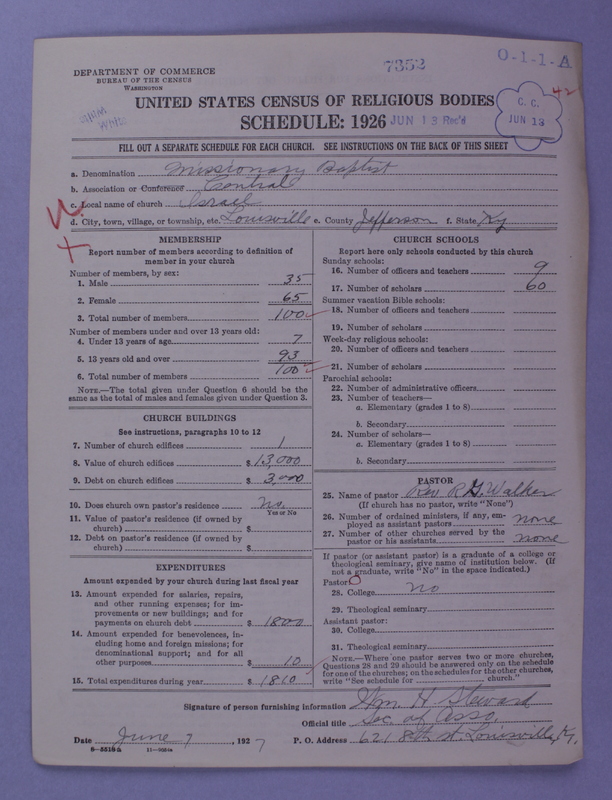 7352
O-1-1-A
DEPARTMENT OF COMMERCE
BUREAU OF THE CENSUS
WASHINGTON
42
C. C.
JUN 13
UNITED STATES CENSUS OF RELIGIOUS BODIES
SCHEDULE: 1926 JUN 13 Rec'd
FILL OUT A SEPARATE SCHEDULE FOR EACH CHURCH. SEE INSTRUCTIONS ON THE BACK OF THIS SHEET
a. Denomination Missionary Baptist
b. Association or Conference Central
c. Local name of church Israel
d. City, town, village, or township, etc. Louisville e. County Jefferson f. State Ky
MEMBERSHIP
Report number of members according to definition of
member in your church
Number of members, by sex:
1. Male 35
2. Female 65
3. Total number of members 100
Number of members under and over 13 years old:
4. Under 13 years of age 7
5. 13 years old and over 93
6. Total number of members 100
NOTE.—The total given under Question 6 should be the
same as the total of males and females given under Question 3.
CHURCH BUILDINGS
See instructions, paragraphs 10 to 12
7. Number of church edifices 1
8. Value of church edifices $ 13,000
9. Debt on church edifices $ 3,000
10. Does church own pastor's residence no.
Yes or No
11. Value of pastor's residence (if owned by
church) $
12. Debt on pastor's residence (if owned by
church) $
EXPENDITURES
Amount expended by your church during last fiscal year
13. Amount expended for salaries, repairs,
and other running expenses; for im-
provements or new buildings; and for
payments on church debt $ 1800
14. Amount expended for benevolences, in-
cluding home and foreign missions; for
denominational support; and for all
other purposes $ 10
15. Total expenditures during year $ 1810
CHURCH SCHOOLS
Report here only schools conducted by this church
Sunday schools:
16. Number of officers and teachers 9
17. Number of scholars 60
Summer vacation Bible schools:
18. Number of officers and teachers
19. Number of scholars
Week-day religious schools:
20. Number of officers and teachers
21. Number of scholars
Parochial schools:
22. Number of administrative officers
23. Number of teachers—
a. Elementary (grades 1 to 8)
b. Secondary
24. Number of scholars—
a. Elementary (grades 1 to 8)
b. Secondary
PASTOR
25. Name of pastor Rev R. G. Walker
(If church has no pastor, write "None")
26. Number of ordained ministers, if any, em-
ployed as assistant pastors none
27. Number of other churches served by the
pastor or his assistants none
If pastor (or assistant pastor) is a graduate of a college or
theological seminary, give name of institution below. (If
not a graduate, write "No" in the space indicated.)
Pastor:
28. College No
29. Theological seminary
Assistant pastor:
30. College
31. Theological seminary
NOTE.—Where one pastor serves two or more churches,
Questions 28 and 29 should be answered only on the schedule
for one of the churches; on the schedules for the other churches,
write "See schedule for church."
Signature of person furnishing information Wm. H. Steward
Official title Sec. of Asso.
Date June 7, 1927 P. O. Address 621 8th st. Louisville, Ky.